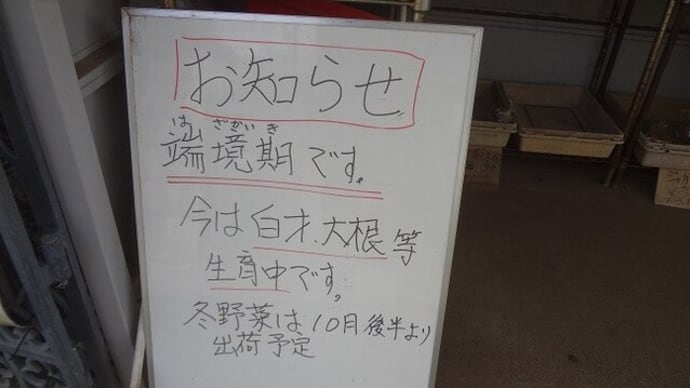 お知らせ
はざかいき
端境期です。
今は白才、大根等
生育中です。
冬野菜は10月後半より
出荷予定